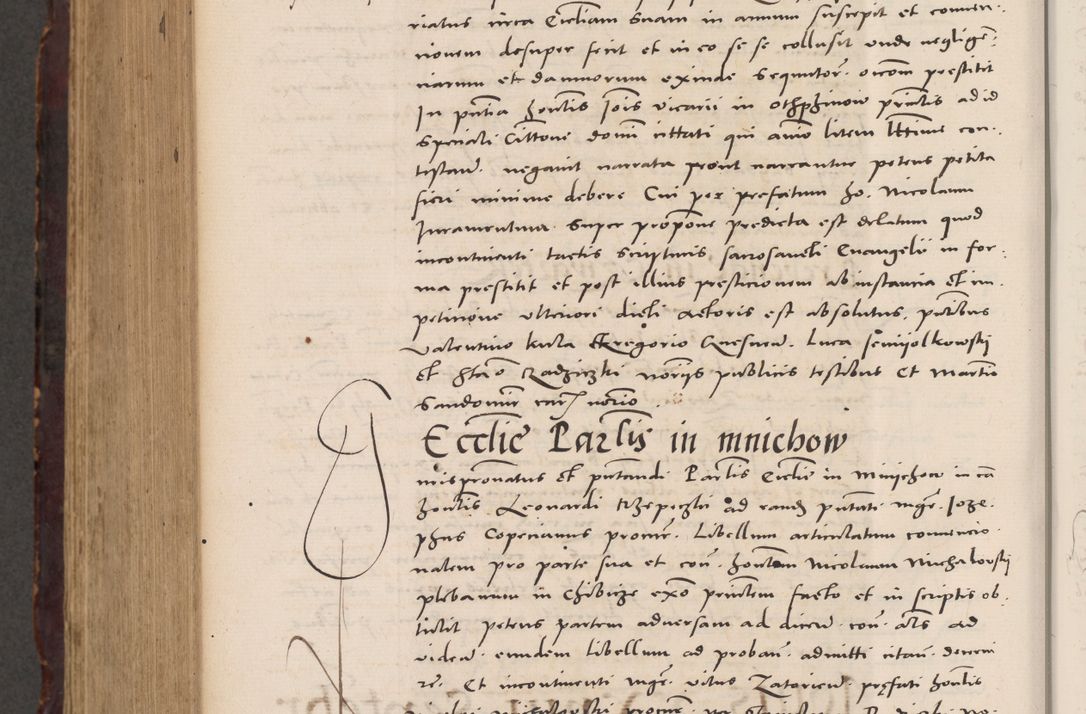 riatus circa Eccliam suam in annum suscepit et conven-
cionem desuper fecit et in eo se se collusit unde negligen-
ciarum et damnorum exinde sequutor. occom prestitit
In pntia honlis Jois vicarii in Othphinow principalis ad id
speciali Cittone domi cittati qui animo litem lttime con-
testan. negavit narrata prout narrantur petens petita
fieri minime debere Cui per prefatum ho. Nicolaum
Juramentum super propone predicta est delatum quod
incontinenti tactis scripturis sacrosancti Evangelii in for-
ma prestitit et post illius presticionem ab instancia et im-
peticione ulteriore dicti actoris est absolutus, pntibus
Valentino kula Gregorio Luca
et Stao Radziczki noriis publicis testibus Et Martin
Sandomir norio
Ecclie Parlis in mnichow
mispronatus et pntandi Parlis Ecclie in Mnichow in ca
honlis Leonardi ad eand pntati. mgr. Joze-
phus Copecianus procur. Libellum articulatum convencio-
nalem pro parte sua et con. honlem Nicolaum Michalowskij
plebanum in Chibicze exo princlem facto et in scriptis ob-
tulit petens partem adversam ad dicen. con. ad
viden. eundem libellum ad proban. admitti citan. decerni
re. Et incontinenti mgr. vitus Zatorien. prefati honlis